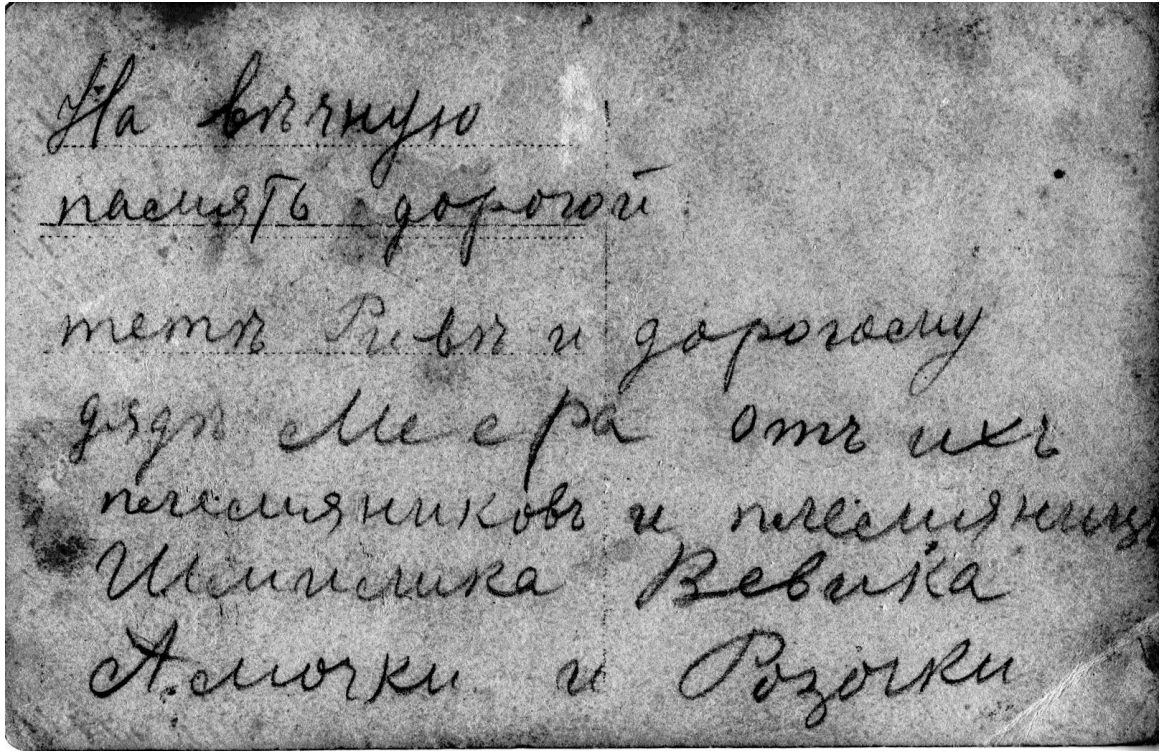 На вѣчную
память дорогой
тетѣ Ривѣ и дорогому
дядѣ Меера отъ ихъ
племяниковъ и племяницъ
Шмилика Вевика
Амочки и Розочки